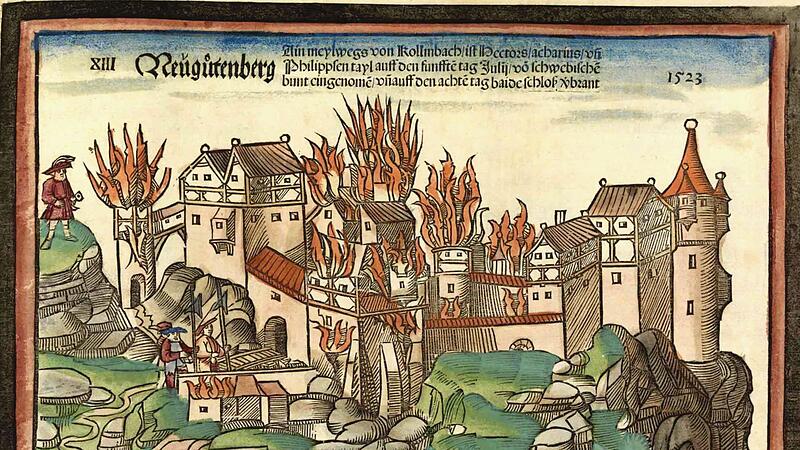 XIII
Neügůtenberg
Ain meylwegs von Kollmbach/ist Hectors/acharius/vñ
Philippsen tayl auff den funfften tag Julij/võ schwebischẽ
bunt eingenomẽ/vñ auff den achtẽ tag baide schloß v̄brant
1523